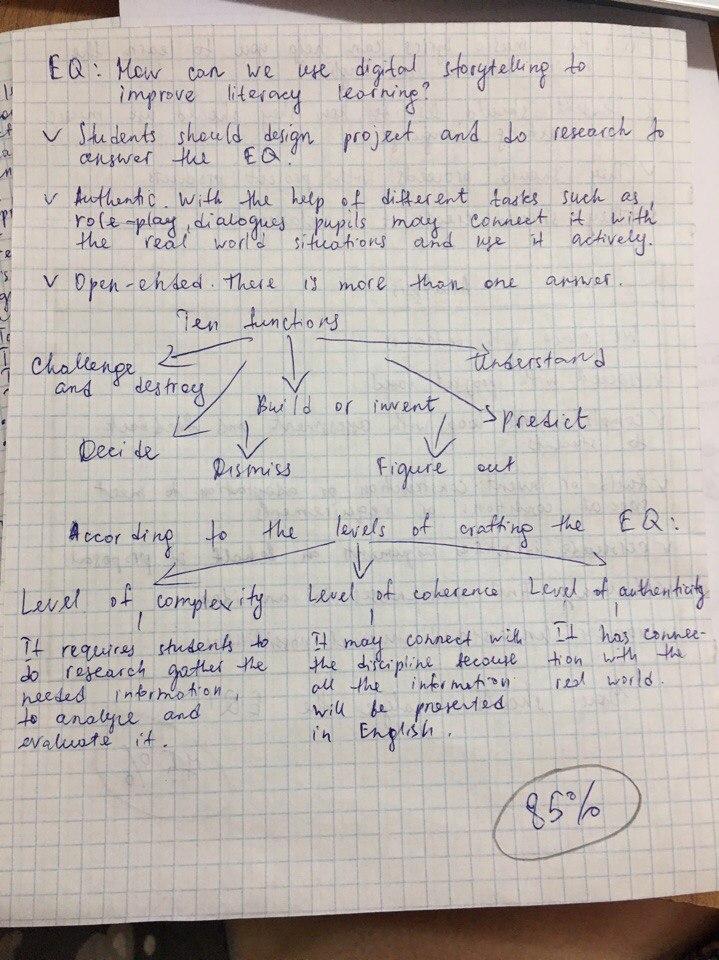 EQ: How can we use digital storytelling to
improve literacy learning?
v Students should design project and do research to
answer the EQ.
v Authentic. With the help of different tasks such as,
role-play, dialogues pupils may connect it with
the real world situations and use it actively.
v Open-ended. There is more than one answer.
Ten functions
Challenge
and destroy
Understand
Build or invent
Predict
Decide
Dismiss
Figure out
According to the levels of crafting the EQ:
Level of complexity
It requires students to
do research gather the
needed information,
to analyze and
evaluate it.
Level of coherence
It may connect with
the discipline because
all the information
will be presented
in English.
Level of authenticity
It has connec-
tion with the
real world.
85%